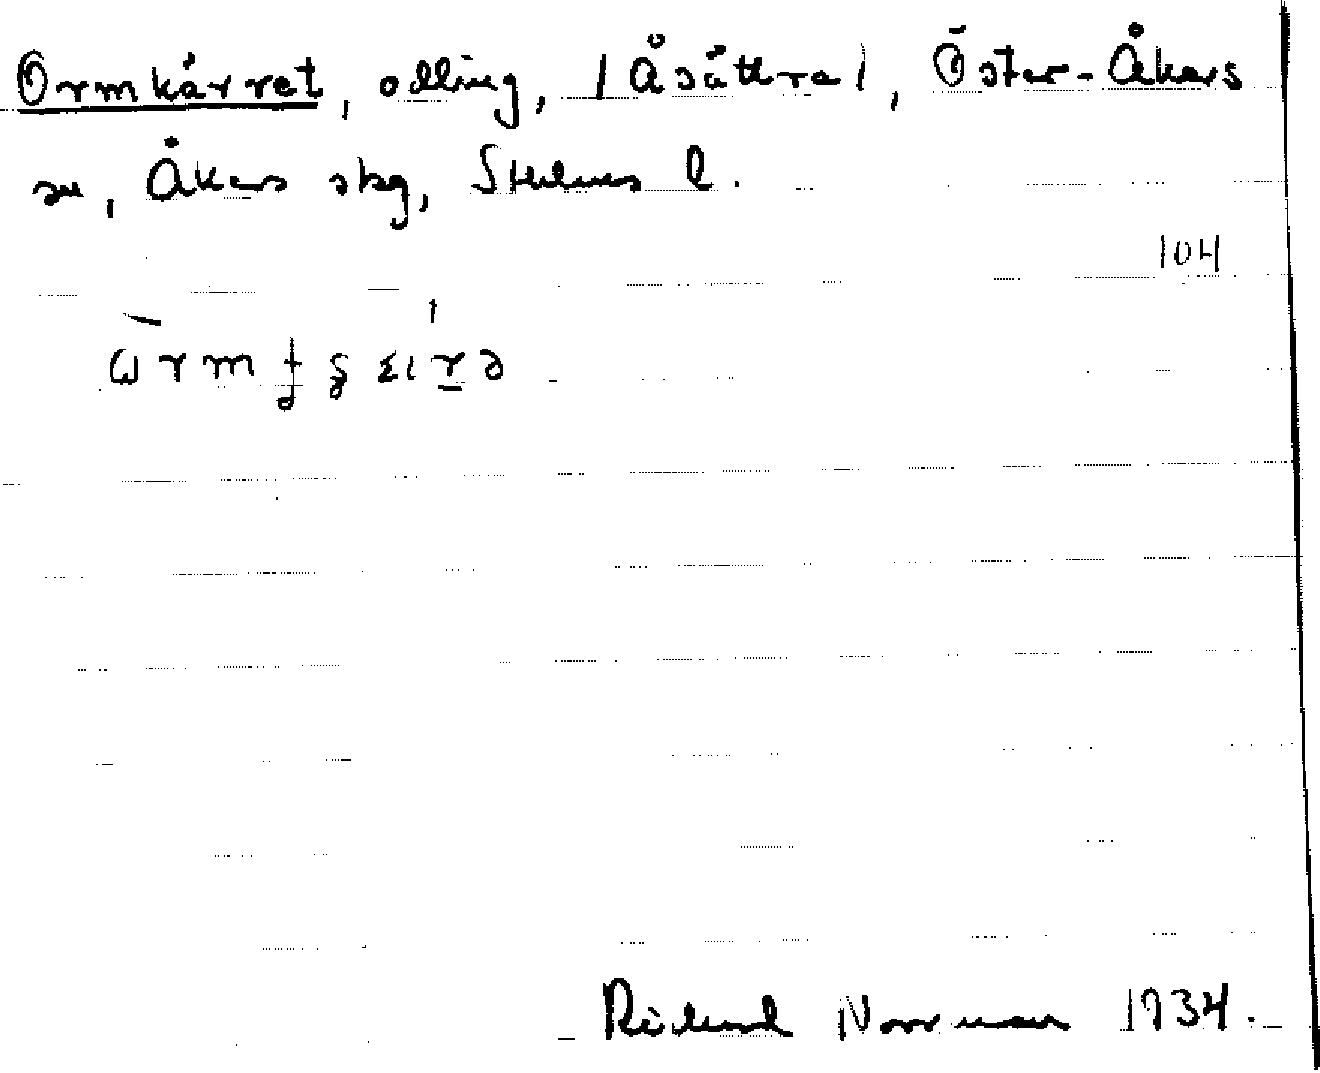 Ormkärret, odling, /Åsättra/, Öster-Åkers
sn, Åkers skg, Sthlms l.
104
Rickard Norrman 1934.